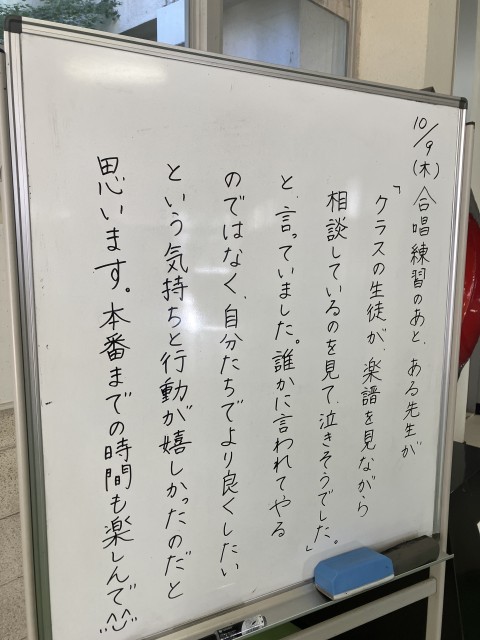 10/9(木) 合唱練習のあと、ある先生が
「クラスの生徒が、楽譜を見ながら
相談しているのを見て、泣きそうでした。」
と、言っていました。誰かに言われてやる
のではなく、自分たちでより良くしたい
という気持ちと行動が嬉しかったのだと
思います。本番までの時間も楽しんで^^